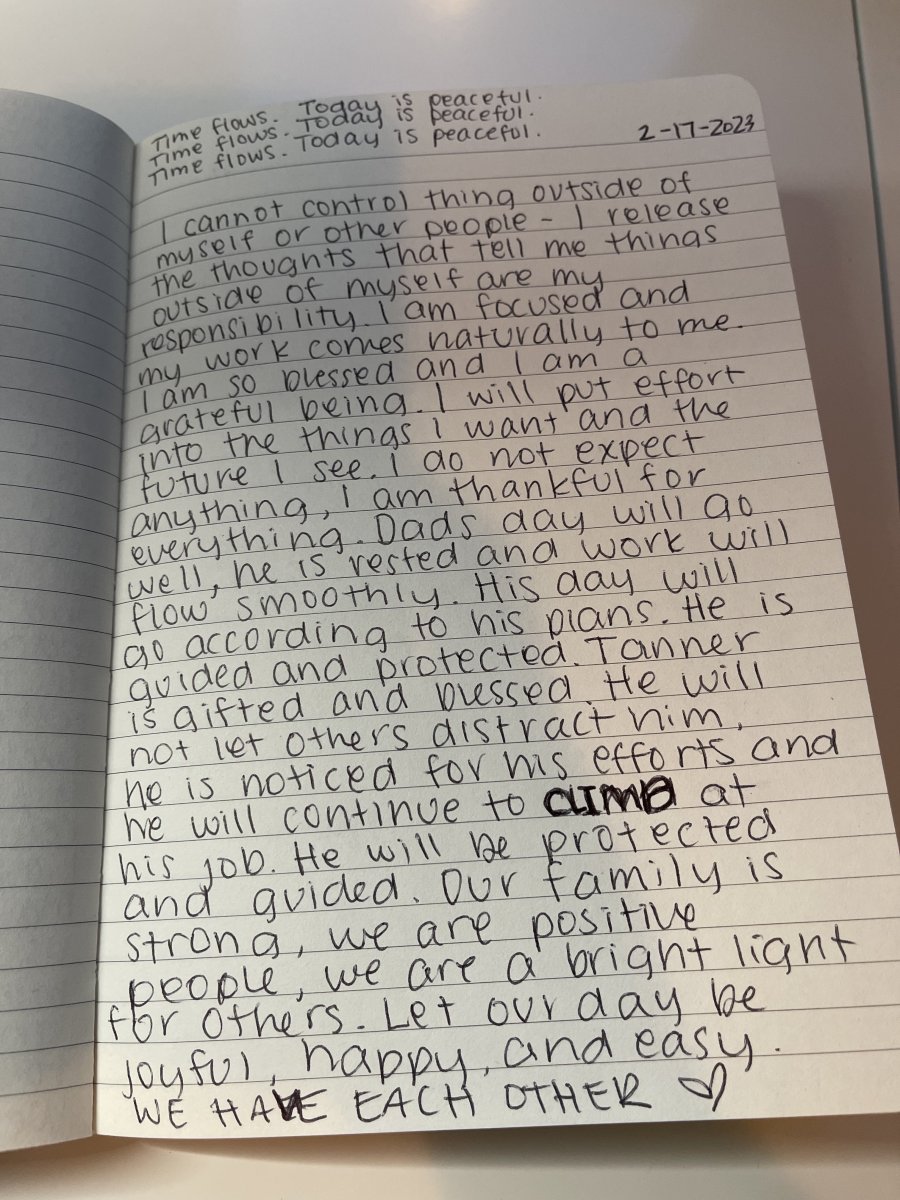 Time flows. Today is peaceful.
Time flows. Today is peaceful.
Time flows. Today is peaceful.
2-17-2023
I cannot control thing outside of
myself or other people - I release
the thoughts that tell me things
outside of myself are my
responsibility. I am focused and
my work comes naturally to me.
I am so blessed and I am a
grateful being. I will put effort
into the things I want and the
future I see. I do not expect
anything, I am thankful for
everything. Dads day will go
well, he is rested and work will
flow smoothly. His day will
go according to his plans. He is
guided and protected. Tanner
is gifted and blessed. He will
not let others distract him,
he is noticed for his efforts and
he will continue to CLIMB at
his job. He will be protected
and guided. Our family is
strong, we are positive
people, we are a bright light
for others. Let our day be
joyful, happy, and easy.
WE HAVE EACH OTHER ♡